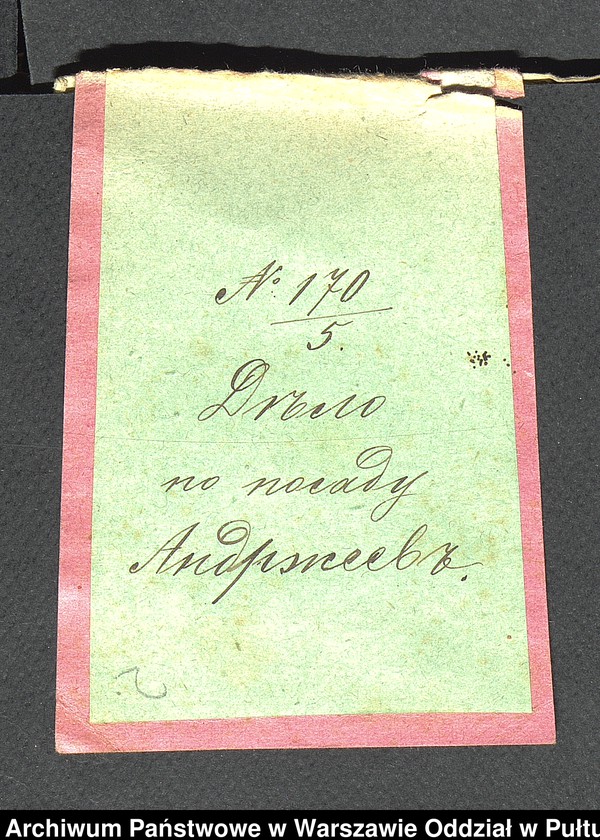 № 170
5.
Дѣло
по посаду
Андржеевъ.
Archiwum Państwowe w Warszawie Oddział w Pułtu